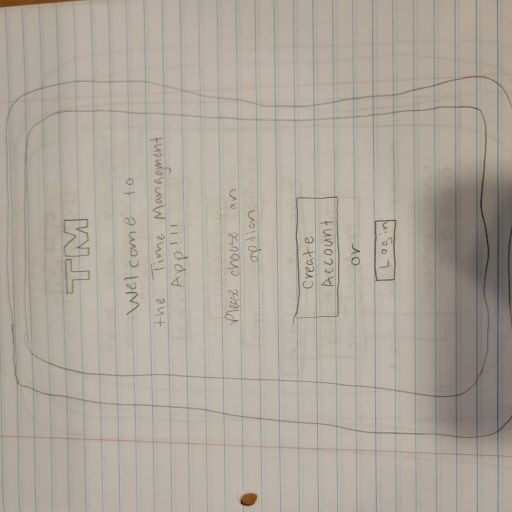 TM
Welcome to
the Time Managment
App!!!
Please choose an
option
Create
Account
or
Login